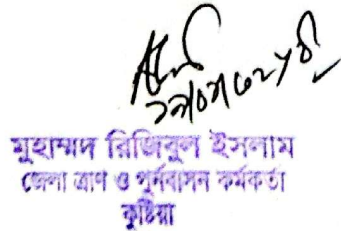 মুহাম্মদ রিজিবুল ইসলাম
জেলা ত্রাণ ও পুর্নবাসন কর্মকর্তা
কুষ্টিয়া